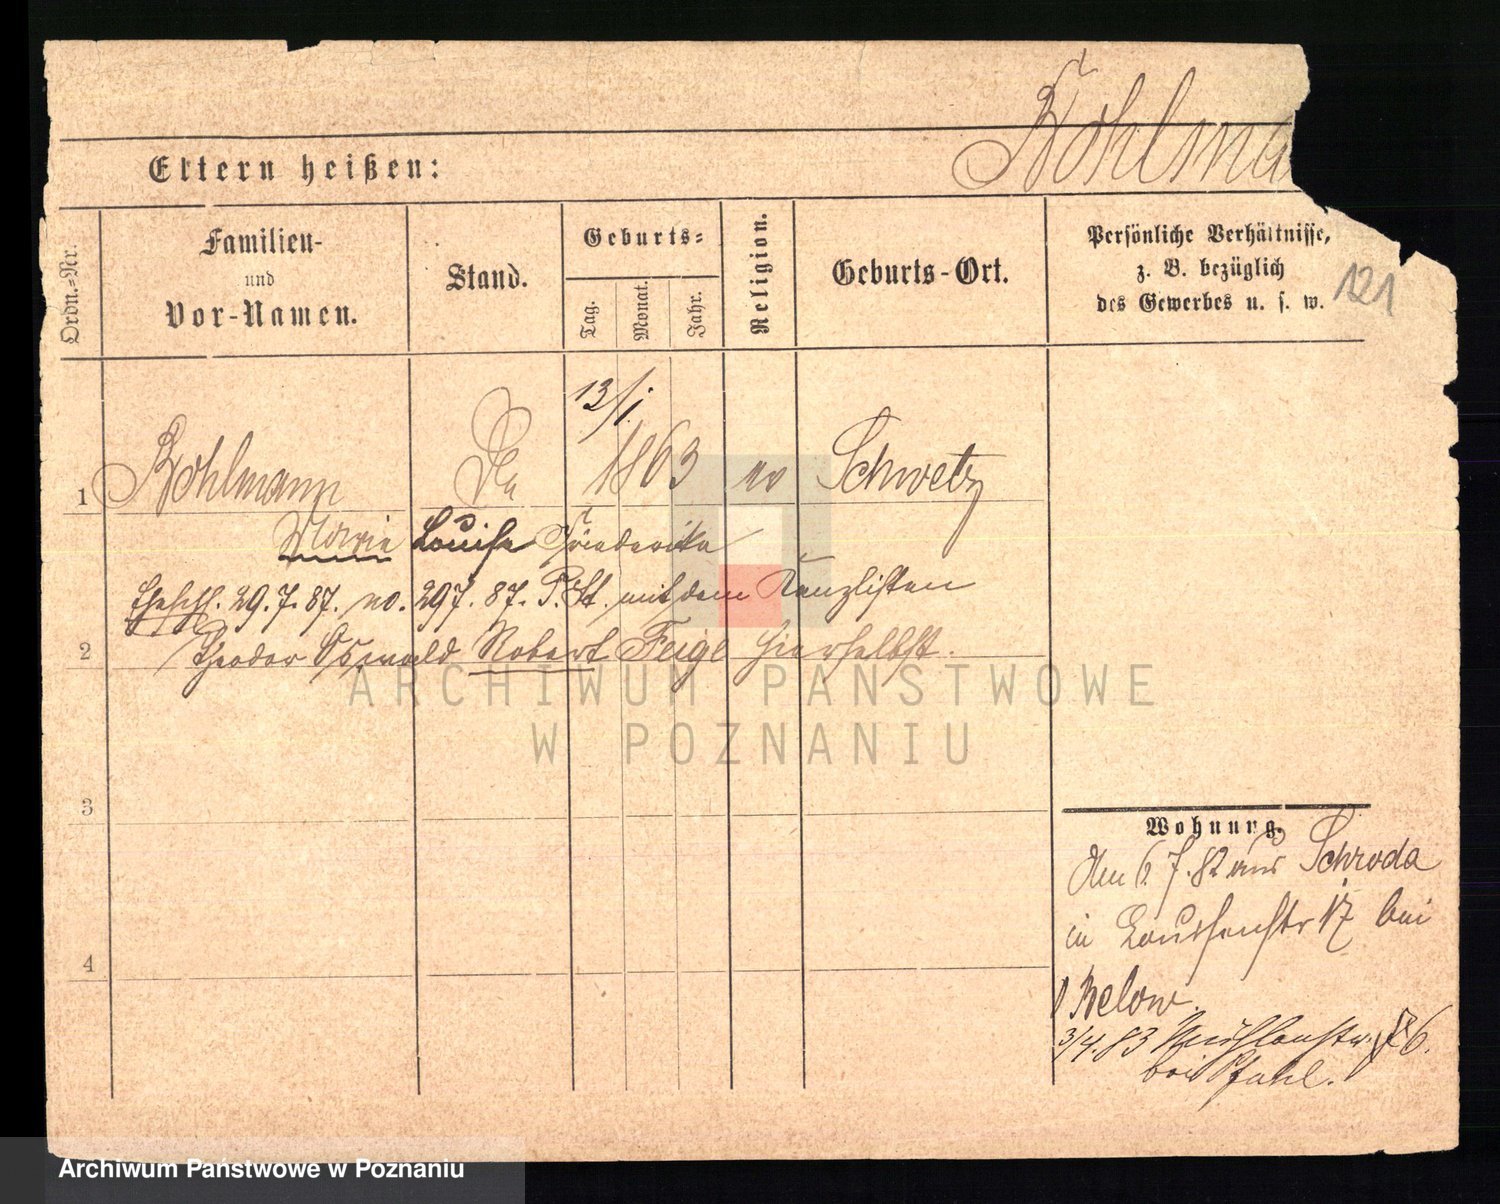 Kohlma
Eltern heißen:
Ordn.-Nr.
Familien-
und
Vor-Namen.
Stand.
Geburts-
Tag.
Monat.
Jahr.
Religion.
Geburts-Ort.
Persönliche Verhältnisse,
z. B. bezüglich
des Gewerbes u. s. w.
121
13/1.
1 Kohlmann 1863 ev Schwetz
Marie Louise Friederike
Ehesch. 29.7.87. 297. 87. P. St. mit dem Kanzlisten
2 Theodor Oswald Robert Feige hierselbst.
3
4
Wohnung.
Am 6.7.82 aus Schroda
in Louisenstr 17 bei
Below.
3/4.83 Mühlenstr. 26.
bei Pfahl.
ARCHIWUM PAŃSTWOWE
W POZNANIU
Archiwum Państwowe w Poznaniu